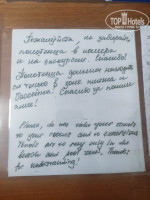 TOP
Hotels
Пожалуйста не забирайте
полотенца в номера
и на экскурсию. Спасибо!
Полотенца должны находи
только в зоне пляжа и
бассейна. Спасибо за пони
ание!
Please, do not take your towels
to your rooms and to excursions
Towels are to stay only in the
beach and pool zone. Thanks
for understanding!